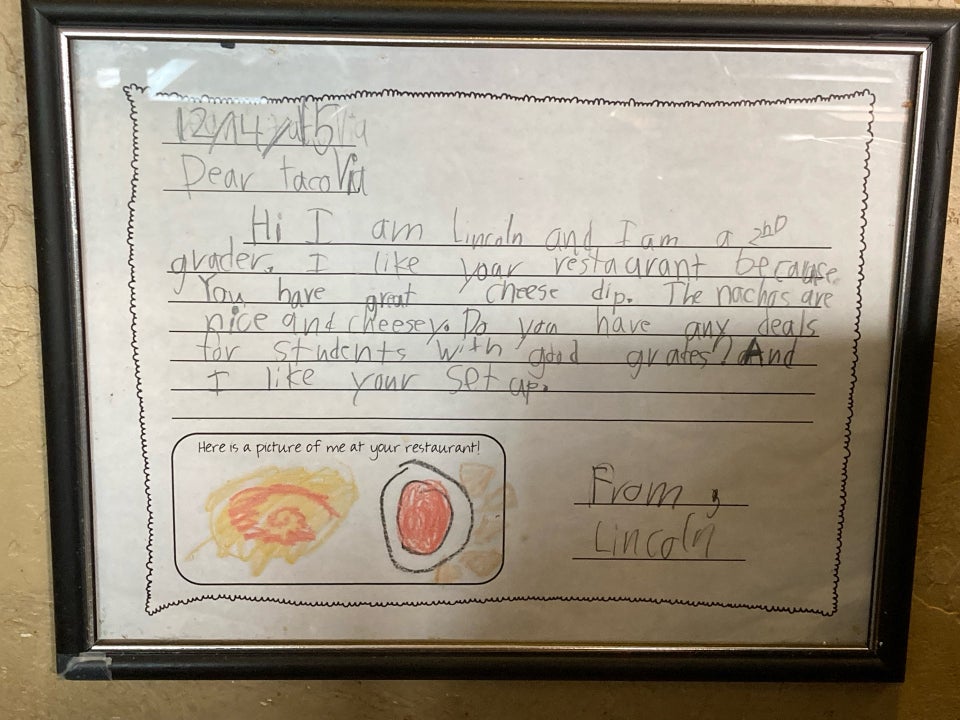 12/14/15
Dear tacoVia
Hi I am Lincoln and I am a 2nD
grader. I like your restaurant because
You have great cheese dip. The nachos are
nice and cheesey. Do you have any deals
for students with good grades? And
I like your set up.
Here is a picture of me at your restaurant!
From,
Lincoln